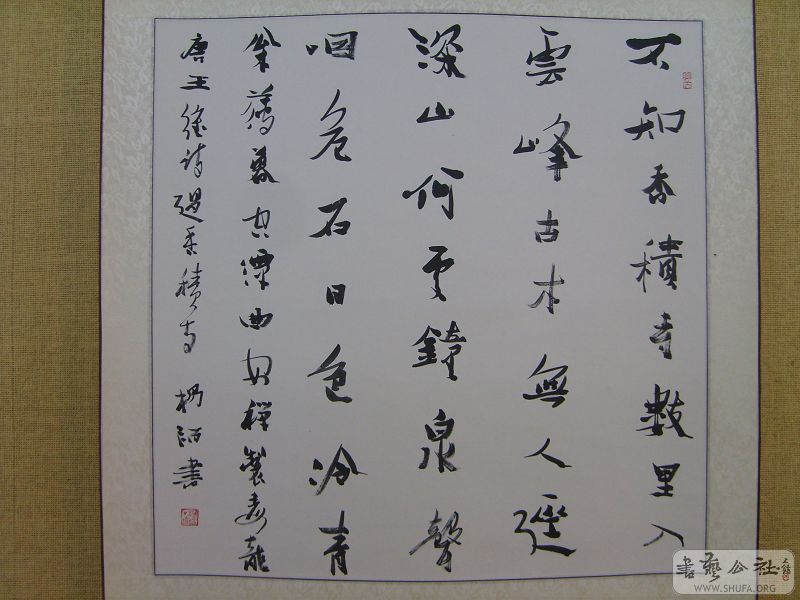 不知香積寺數里入
雲峰古木無人逕
深山何處鐘泉聲
咽危石日色冷青
松薄暮空潭曲安禪製毒龍
唐王維詩過香積寺 書
書藝公社
WWW.SHUFA.ORG